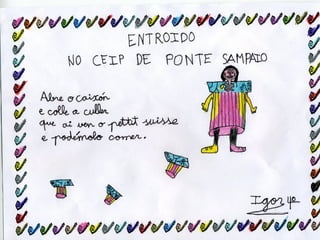 ENTROIDO
NO CEIP DE PONTE SAMPAIO
Abre o caixón
e colle a culler
que ai ven o pettit suisse
e podémolo comer.
Igor 4º